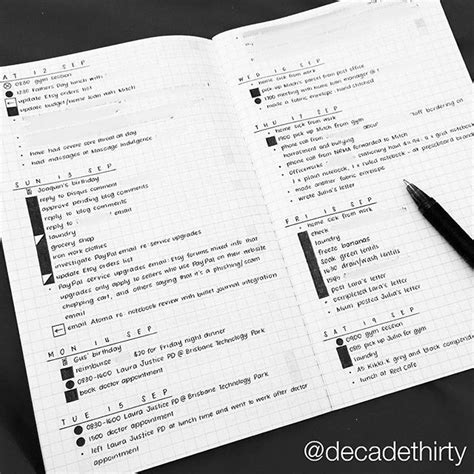 SAT 12 SEP
0830 gym session
1230 Fathers Day lunch with
update Etsy orders list
update budget/home loan with Mitch
have had severe sore throat all day
had massages at Massage Indulgence
SUN 13 SEP
Joaquin's birthday
reply to Disqus comment
approve pending blog comments
reply to blog comments
reply to email
laundry
grocery shop
iron work clothes
investigate PayPal email re service upgrades
update Etsy orders list
PayPal service upgrades email: Etsy forums mixed info that
upgrades only apply to sellers who use PayPal on their website
shopping cart, and others saying that it's a phishing/scam
email
email Atoma re: notebook review with bullet journal integration
MON 14 SEP
Gus' birthday
reimburse $20 for Friday night dinner
0830-1600 Laura Justice PD @ Brisbane Technology Park
book doctor appointment
TUE 15 SEP
0830-1600 Laura Justice PD @ Brisbane Technology Park
1500 doctor appointment
left Laura Justice PD at lunch time and went to work after doctor
WED 16 SEP
home sick from work
pick up Mitch's parcel from post office
1700 meeting with home loan manager @
made a fabric envelope: hand stitched
THU 17 SEP
home sick from work
1900 pick up Mitch from gym
phone call from about
harassment and bullying
phone call from NFHA forwarded to Mitch
Officeworks:
1 plain notebook, 1 ruled notebook
made another fabric envelope
wrote Julia's letter
FRI 18 SEP
home sick from work
check
laundry
freeze bananas
soak green lentils
1630 drain/wash lentils
post Lara's letter
completed Lara's letter
Mum posted Julia's letter
SAT 19 SEP
0900 gym session
pick up Julia for gym
laundry
A5 Kikki.K grey and black composition
lunch at Reel Cafe
@decadethirty